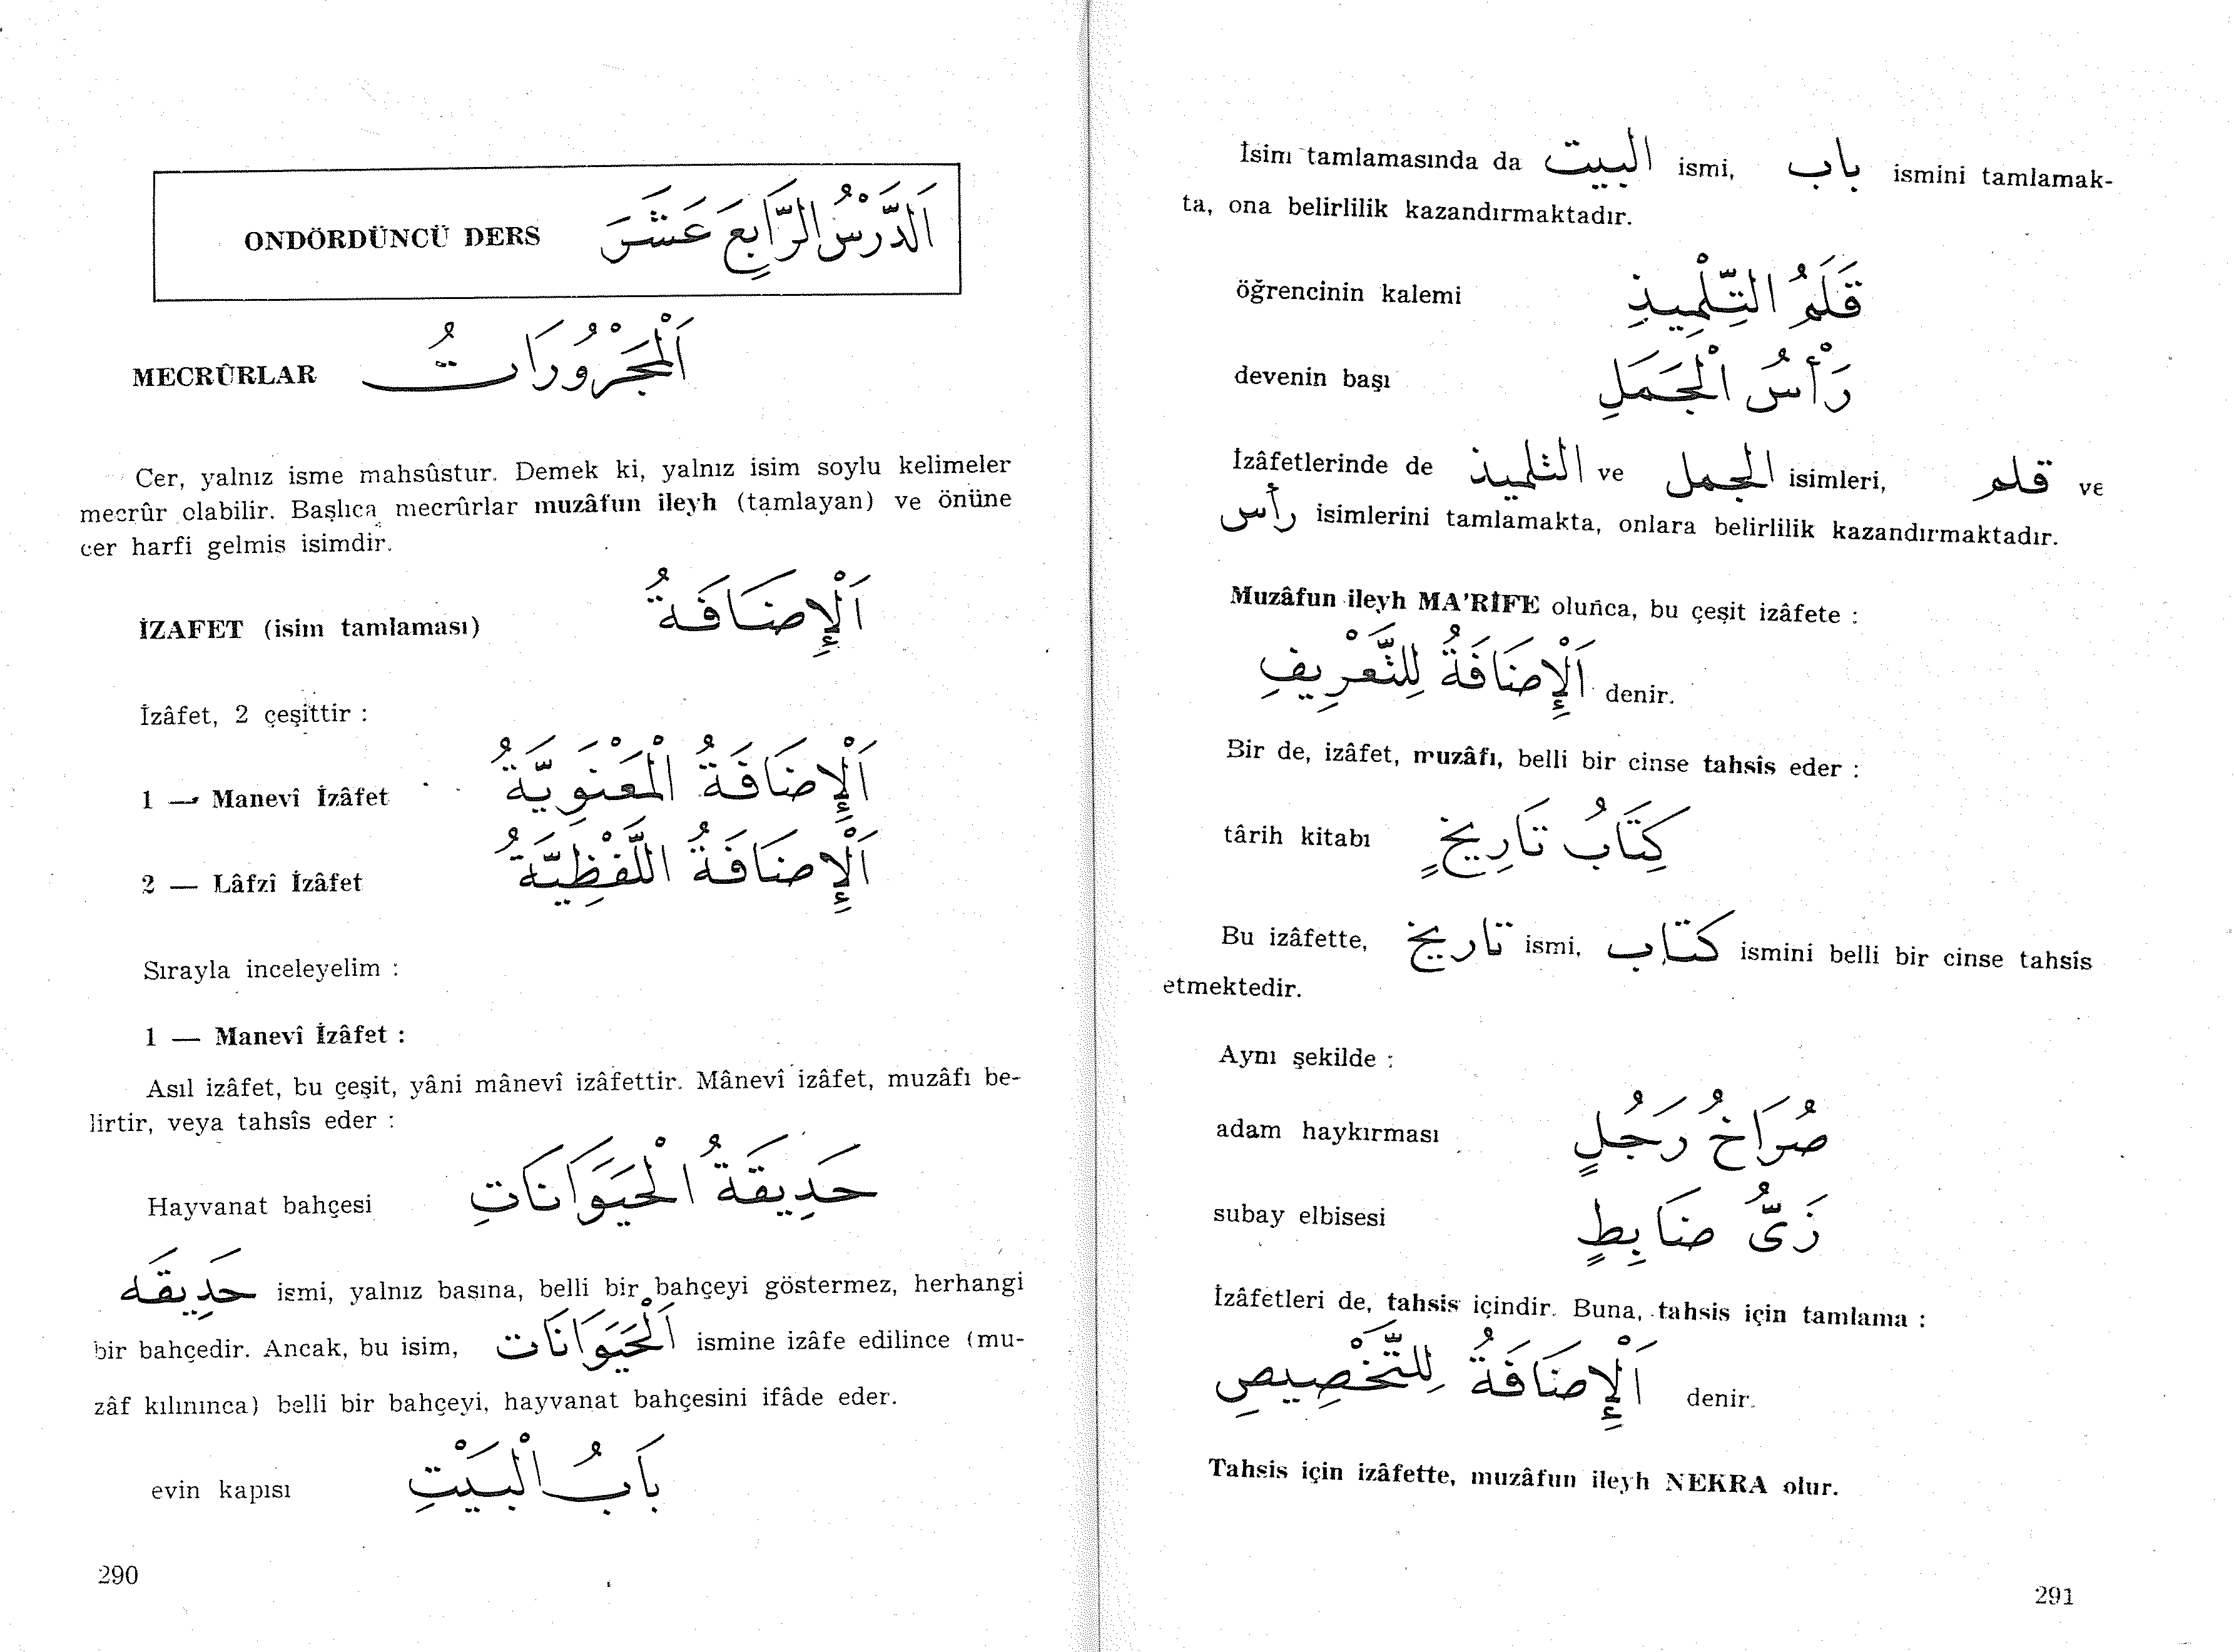 ONDÖRDÜNCÜ DERS اَلدَّرْسُ الرَّابِعَ عَشَرَ
MECRÛRLAR اَلْمَجْرُورَاتُ
Cer, yalnız isme mahsûstur. Demek ki, yalnız isim soylu kelimeler
mecrûr olabilir. Başlıca mecrûrlar muzâfun ileyh (tamlayan) ve önüne
cer harfi gelmis isimdir.
İZAFET (isim tamlaması) اَلْإِضَافَةُ
İzâfet, 2 çeşittir :
1 — Manevî İzâfet اَلْإِضَافَةُ الْمَعْنَوِيَّةُ
2 — Lâfzî İzâfet اَلْإِضَافَةُ اللَّفْظِيَّةُ
Sırayla inceleyelim :
1 — Manevî İzâfet :
Asıl izâfet, bu çeşit, yâni mânevî izâfettir. Mânevî izâfet, muzâfı be-
lirtir, veya tahsîs eder :
Hayvanat bahçesi حَدِيقَةُ الْحَيَوَانَاتِ
حَدِيقَه ismi, yalnız basına, belli bir bahçeyi göstermez, herhangi
bir bahçedir. Ancak, bu isim, اَلْحَيَوَانَات ismine izâfe edilince (mu-
zâf kılınınca) belli bir bahçeyi, hayvanat bahçesini ifâde eder.
evin kapısı بَابُ الْبَيْتِ
290
İsim tamlamasında da البيت ismi, باب ismini tamlamak-
ta, ona belirlilik kazandırmaktadır.
öğrencinin kalemi قَلَمُ التِّلْمِيذِ
devenin başı رَأْسُ الْجَمَلِ
İzâfetlerinde de التلميذ ve الجمل isimleri, قلم ve
رأس isimlerini tamlamakta, onlara belirlilik kazandırmaktadır.
Muzâfun ileyh MA'RİFE olunca, bu çeşit izâfete :
اَلْإِضَافَةُ لِلتَّعْرِيفِ denir.
Bir de, izâfet, muzâfı, belli bir cinse tahsis eder :
târih kitabı كِتَابُ تَارِيخٍ
Bu izâfette, تاريخ ismi, كتاب ismini belli bir cinse tahsîs
etmektedir.
Aynı şekilde :
adam haykırması صُرَاخُ رَجُلٍ
subay elbisesi زَىُّ ضَابِطٍ
İzâfetleri de, tahsis içindir. Buna, tahsis için tamlama :
اَلْإِضَافَةُ لِلتَّخْصِيصِ denir.
Tahsis için izâfette, muzâfun ileyh NEKRA olur.
291